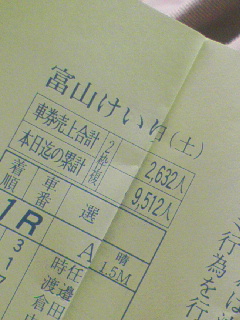 富山けいりん(土)
車券売上合計 2枠複 2,632人
本日迄の累計 9,512人
着順 車番 選
1R A 晴 1.5M
3 時任
1 渡邉
7 倉田
は
行為を行